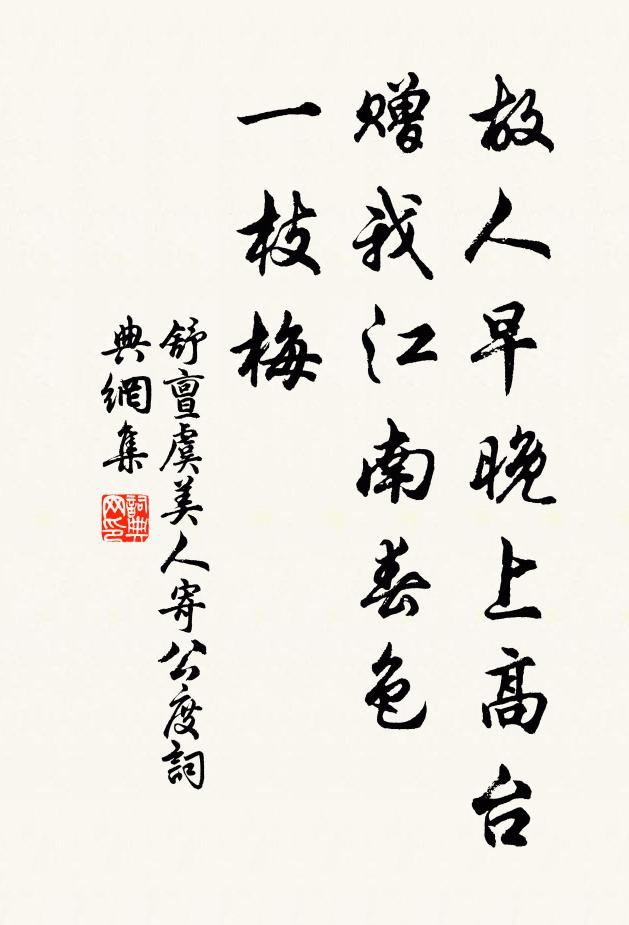 故人早晚上高台
赠我江南春色
一枝梅
舒亶虞美人寄公度詞
典網集
詞典网印